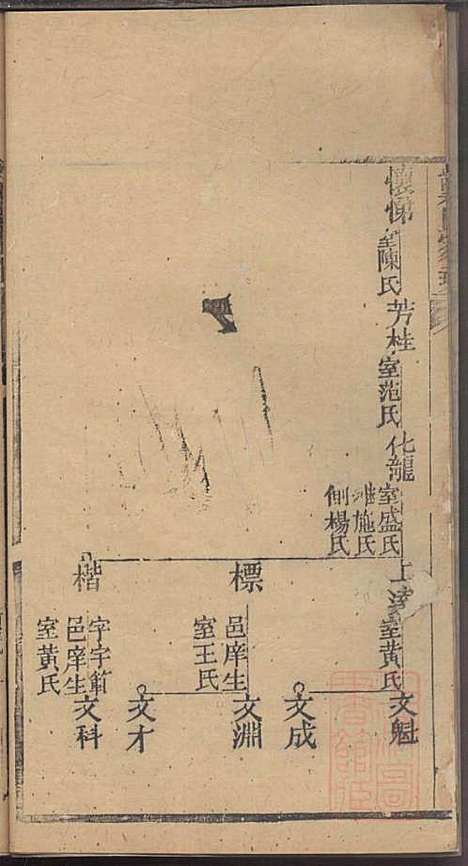 懷悌
室陳氏
芳桂
室范氏
化龍
室盛氏
繼施氏
側楊氏
上達
室黃氏
文魁
文成
標
邑庠生
室王氏
文淵
文才
楷
字字範
邑庠生
室黃氏
文科